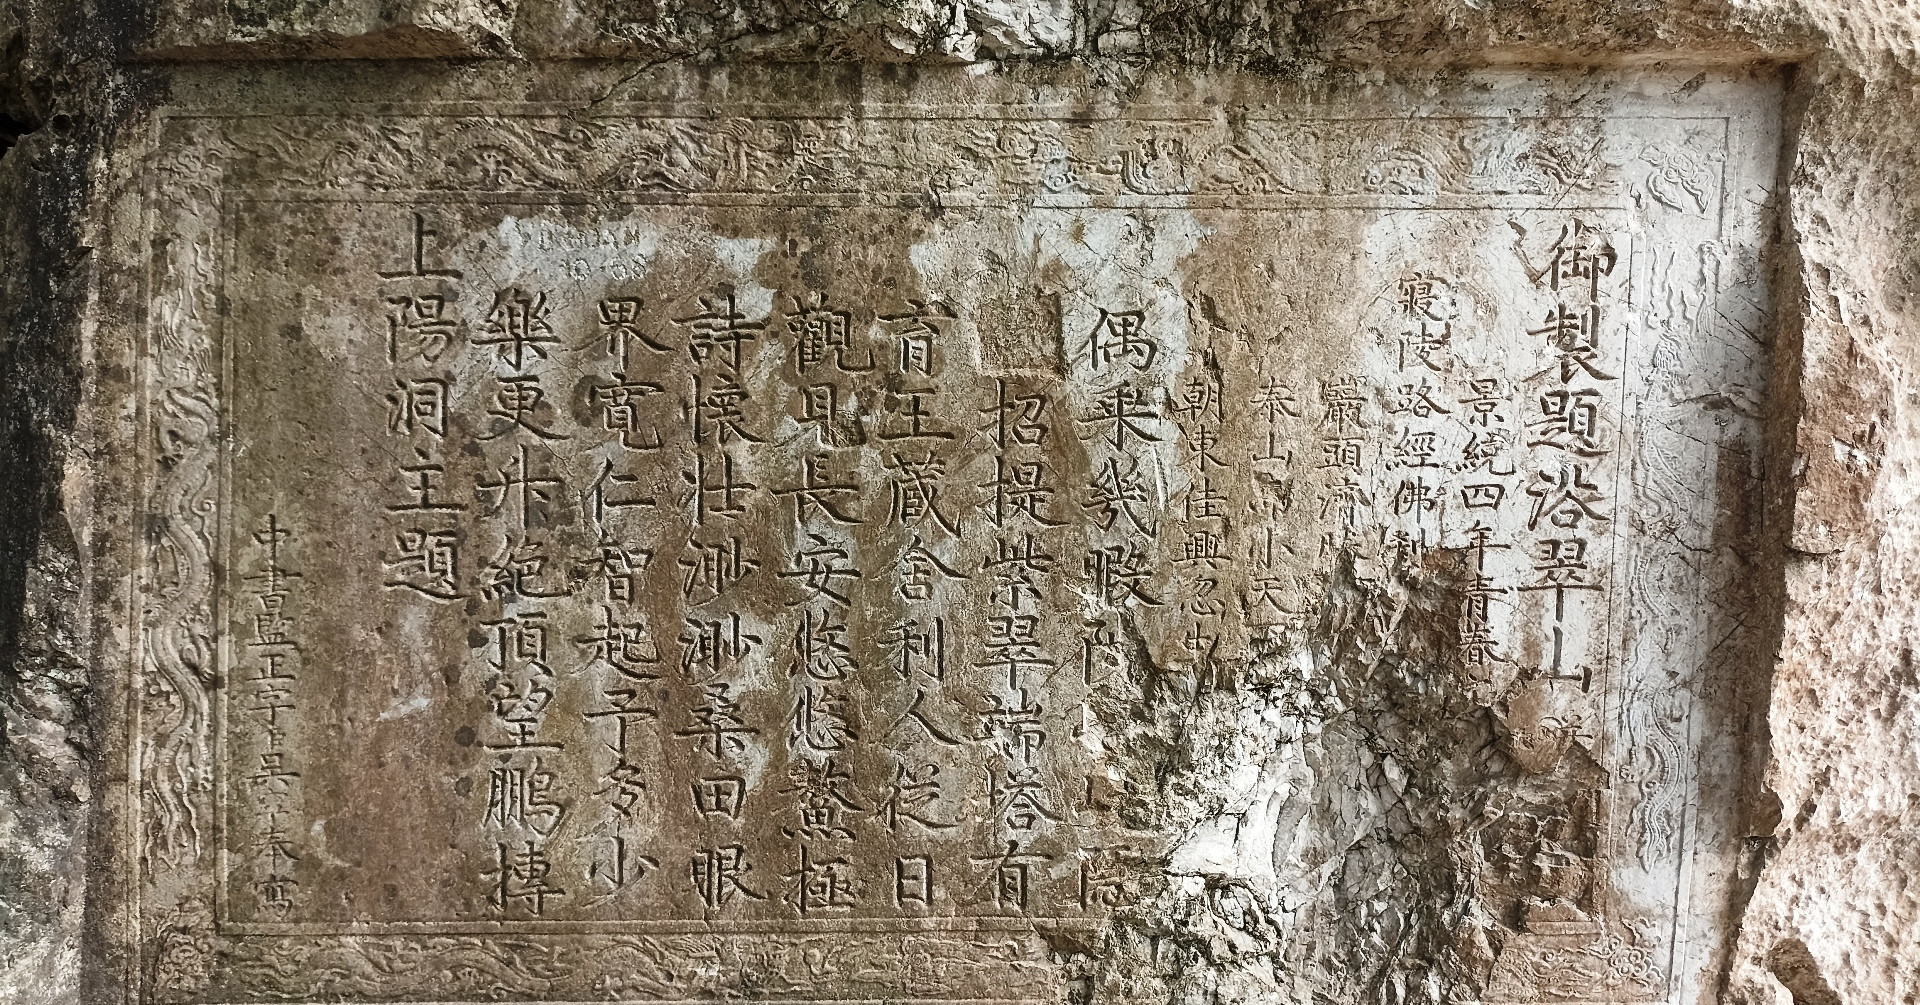 御製題浴翠山
景繞四年青春
寢陵路經佛
巖頭濟
泰山 小天
朝東佳興忽
偶乘幾暇
招提紫翠湍塔有
育王藏舍利人從日
觀見長安悠悠鰲極
詩懷壯渺渺桑田眼
界寬仁智起予多少
樂更升絕頂望鵬摶
上陽洞主題
中書監正字臣吳 本寫